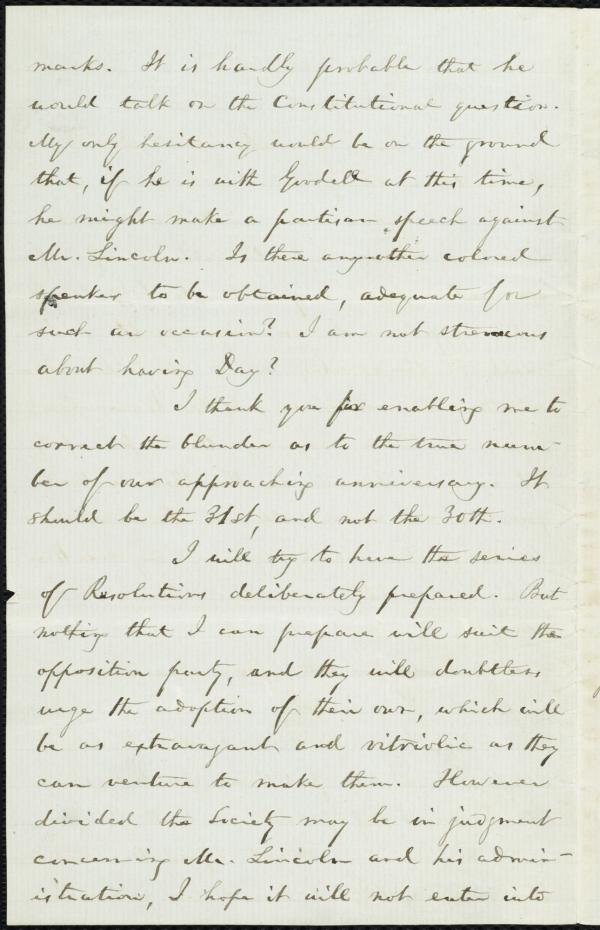 marks. It is hardly probable that he
would talk on the Constitutional question.
My only hesitancy would be on the ground
that, if he is with Goodell at this time,
he might make a partisan speech against
Mr. Lincoln. Is there any other colored
speaker to be obtained, adequate for
such an occasion? I am not strenuous
about having Day?
I thank you for enabling me to
correct the blunder as to the true num-
ber of our approaching anniversary. It
should be the 31st, and not the 30th.
I will try to have the series
of Resolutions deliberately prepared. But
nothing that I can prepare will suit the
opposition party, and they will doubtless
urge the adoption of their own, which will
be as extravagant and vitriolic as they
can venture to make them. However
divided the Society may be in judgment
concerning Mr. Lincoln and his admin-
istration, I hope it will not enter into